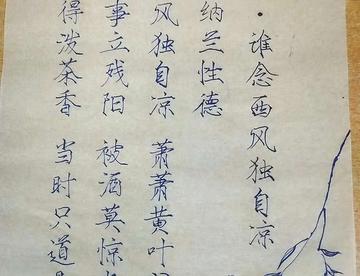 ·谁念西风独自凉
纳兰性德
风独自凉 萧萧黄叶
事立残阳 被酒莫惊
得泼茶香 当时只道